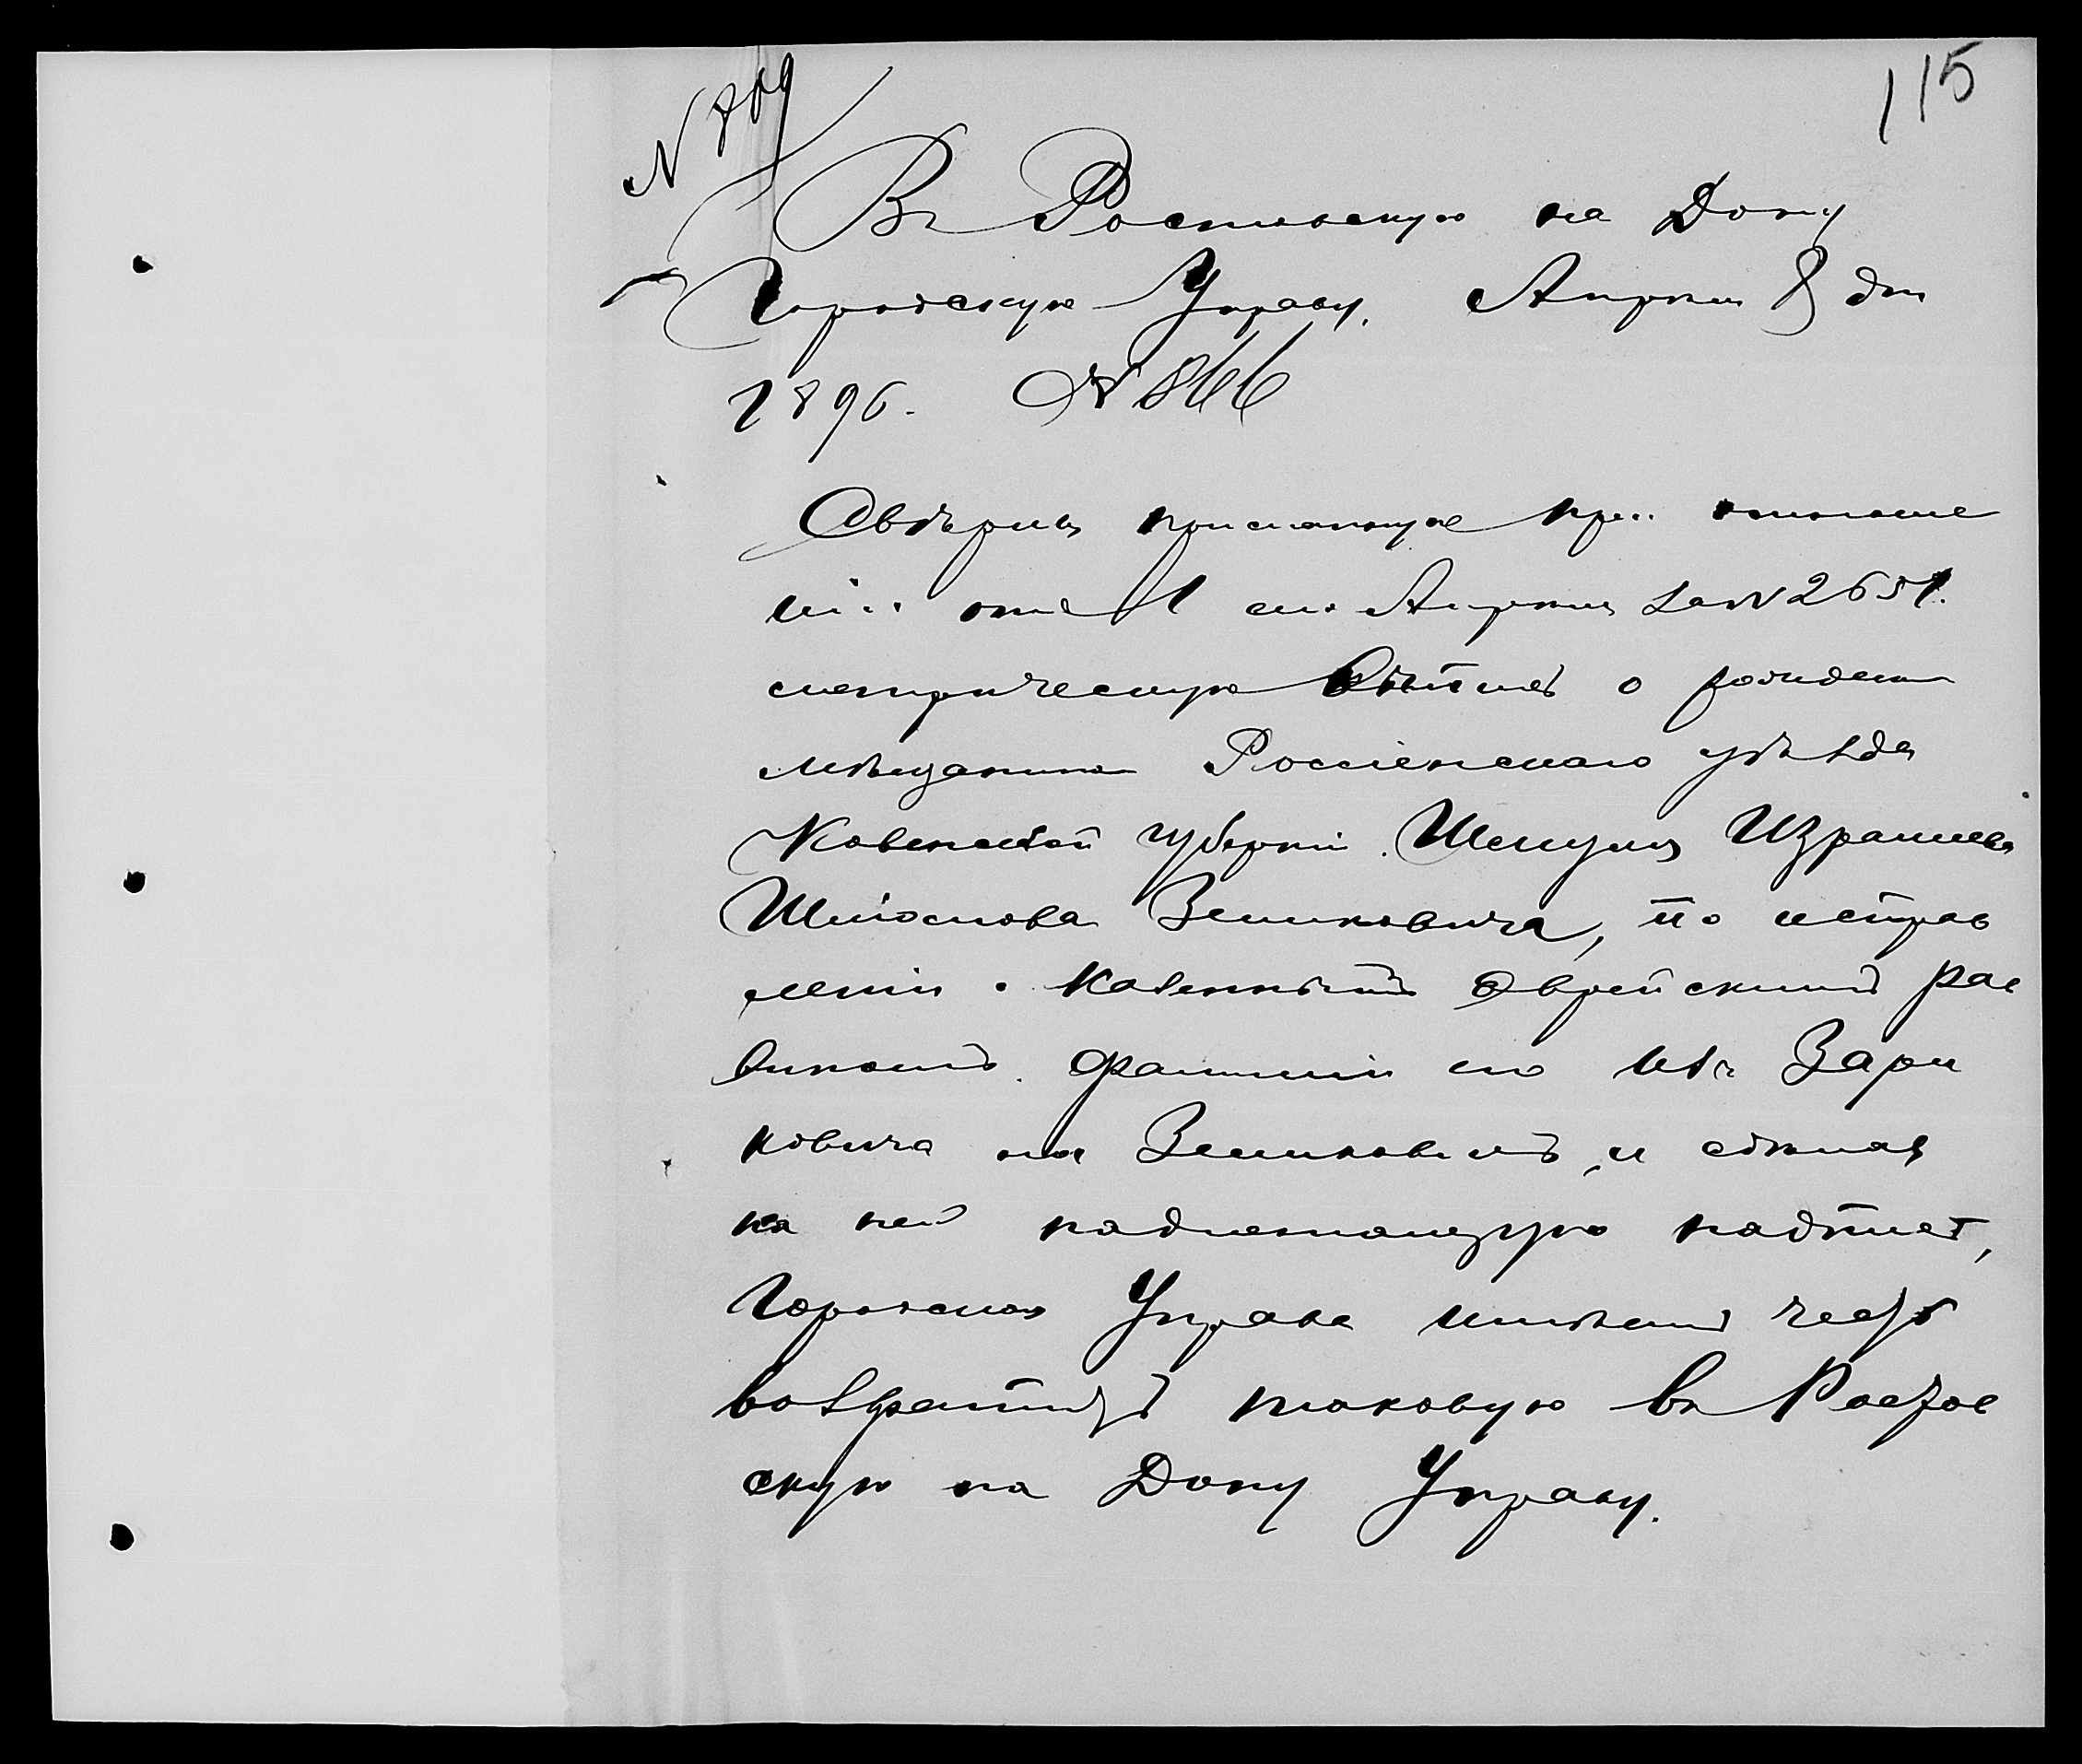 115
N 809
Въ Ростовскую на Дону
Городскую Управу. Апрѣля 8 дня
1896. № 866
Свѣривъ присланную при отноше
ніи отъ 1 сего Апрѣля за N 2651.
метрическую выпись о рожденіи
мѣщанина Россіенскаго уѣзда
Ковенской губерніи. Шмуля Израилева
Шліомова Зеликовича, по исправ
леніи Ковенскимъ Еврейскимъ рав
виномъ. фамиліи его изъ Зари
ковича на Зеликовичъ, и сдѣлавъ
на ней надлежащую надпись,
Городская Управа имѣетъ честь
возвратить таковую въ Ростов
скую на Дону Управу.